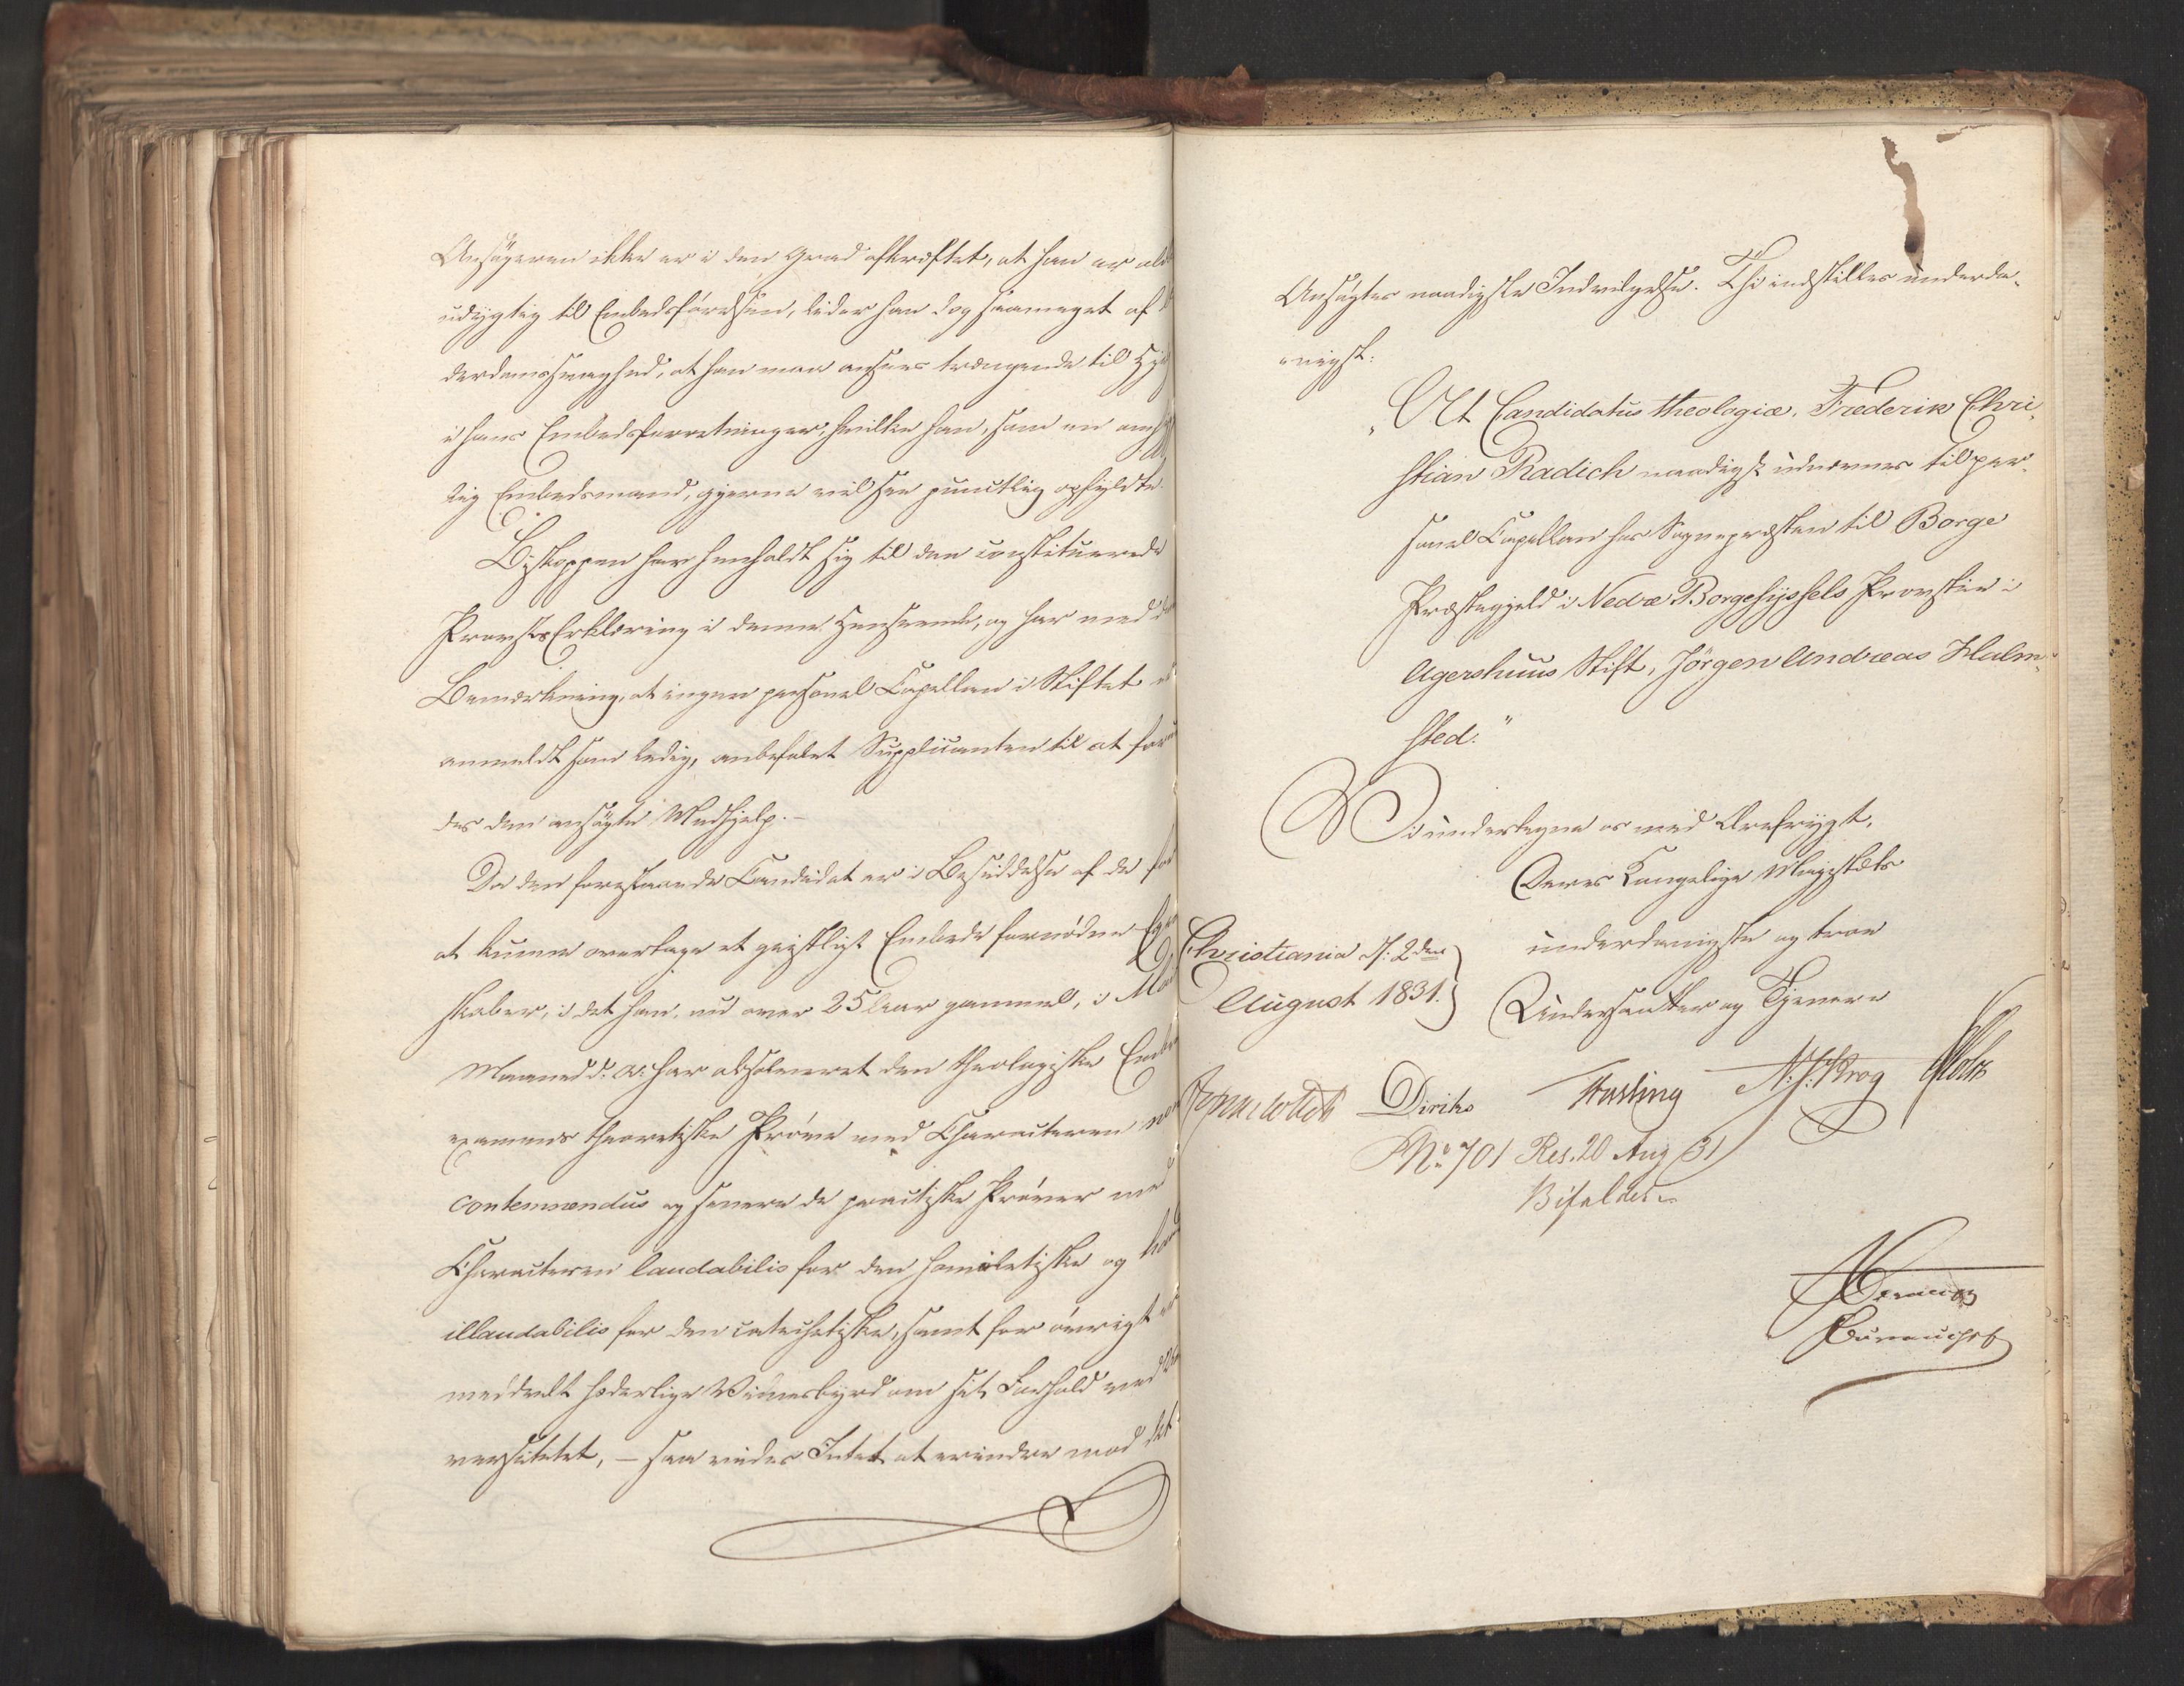 Ansøgeren ikke er i den Grad afkræftet, at han er alde
udygtig til Embedsførelsen, lider han dog saameget af
derdomssvaghed, at han maa ansees trængende til Hje
i hans Embedsforretninger, hvilke han, som en
lig Embedsmand, gjerne vil see punctlig opfyldte.
Biskoppen har henholdt sig til den constituerede
Provsts Erklæring i denne Henseende, og har med
Bemærkning, at ingen personel Capellan i Stiftet
anmeldt som ledig, anbefalet Supplicanten til at for
des den ansøgte Medhjelp.–
Da den foreslaaede Candidat er i Besiddelse af de
at kunne overtage et geistligt Embede fornødne Egen
skaber, i det han, nu over 25 Aar gammel, i
Maaned d: A: har absolveret den theologiske Em
examens theoretiske Prøve med Characteren
contemnendus og senere de practiske Prøver med
Characteren laudabilis for den homiletiske og
illaudabilis for den catechetiske, samt for øvrigt er
meddeelt hæderlige Vidnesbyrd om sit Forhold ved
versitetet, – saa vides Intet at erindre mod det
Ansøgtes naadigste Indvilgelse. Thi indstilles underda-
„nigst:
„At Candidatus theologiæ, Frederik Chri-
stian Radich naadigst udnævnes til per-
sonel Capellan hos Sognepræsten til Borge
Præstegjeld i Nedre Borgesyssels Provstie i
Agershuus Stift, Jörgen Andreas Halm-
sted."
Vi undertegne os med Ærefrygt,
Deres Kongelige Majestæts
underdanigste og troe
Undersaatter og Tjenere
Christiania d: 2den
August 1831.
Diriks Fasling N: J: Krog
No 701 Res. 20 Aug 31
Bifaldes
Bureauchef